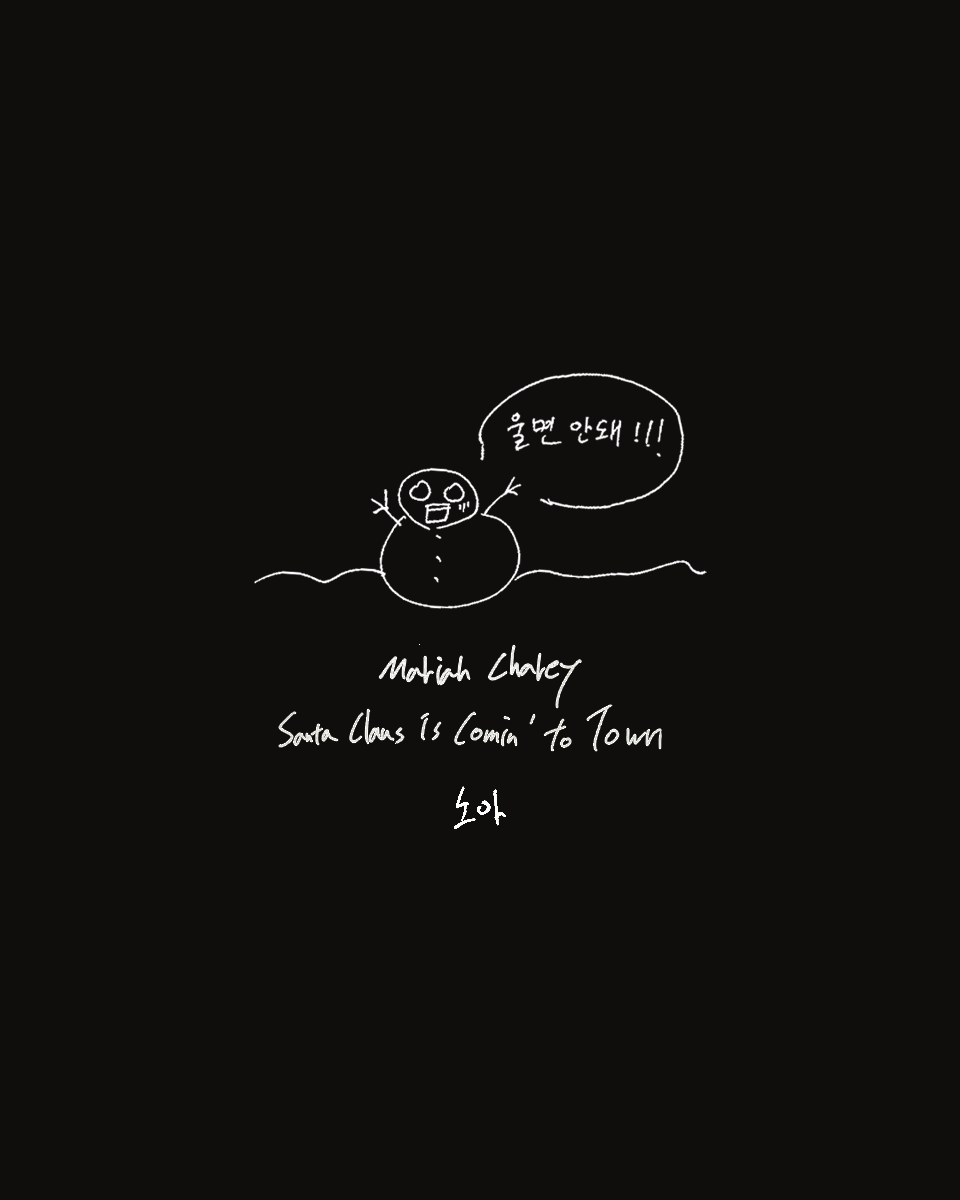 울면 안돼!!!
Mariah Charey
Santa Claus is Comin' to Town
노아